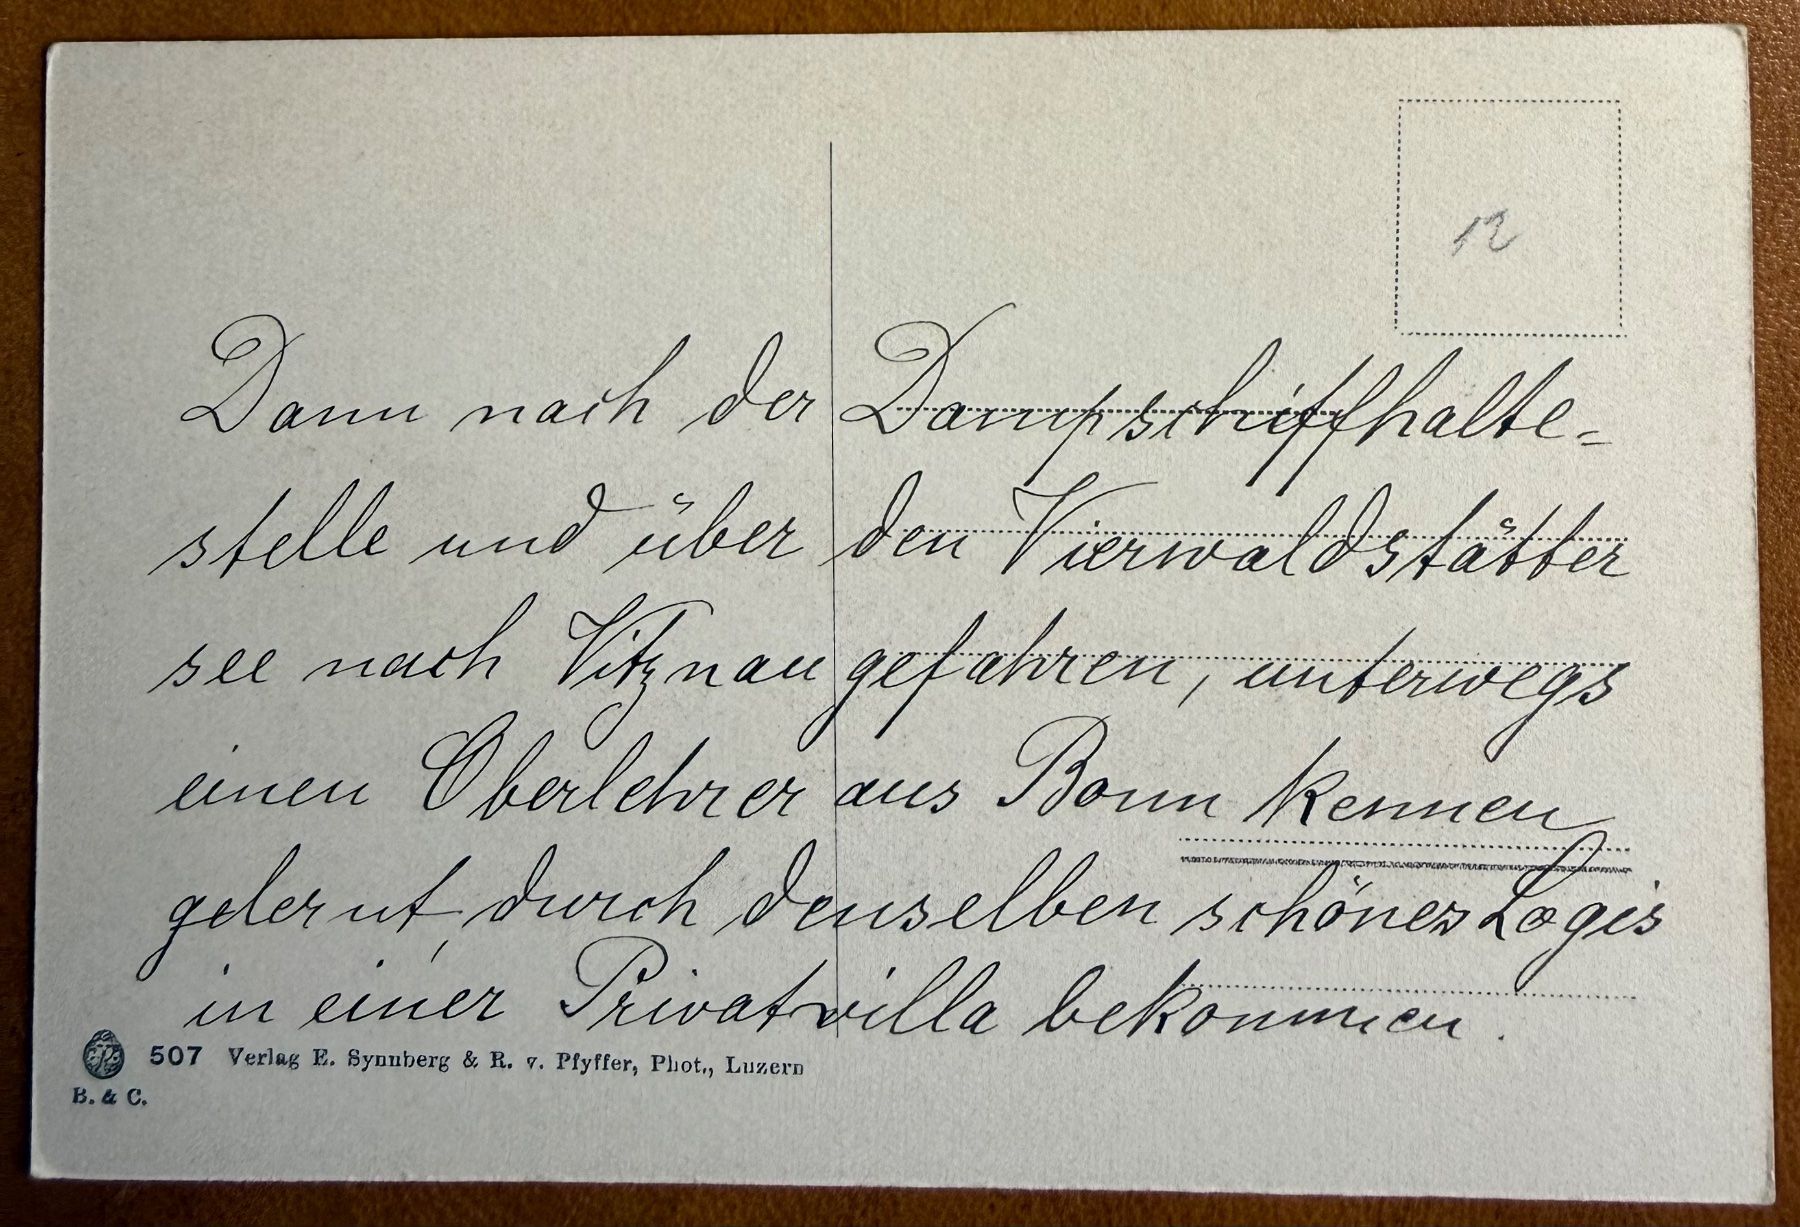 12
Dann nach der Dampschiffhalte=
stelle und über den Vierwaldstätter
see nach Vitznau gefahren, unterwegs
einen Oberlehrer aus Bonn kennen
gelernt, durch denselben schönes Logis
in einer Privatvilla bekommen.
507 Verlag E. Synnberg & R. v. Pfyffer, Phot., Luzern
B. & C.